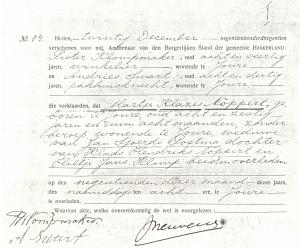 No. 84.
Heden, twintig December negentienhonderdnegentien
verschenen voor mij, Ambtenaar van den Burgerlijken Stand der gemeente HASKERLAND:
Pieter Klompmaker, oud achtendertig
jaren, winkelier, wonende te Joure
en Andries Swart, oud achtendertig
jaren, pakhuisknecht, wonende te Joure,
die verklaarden, dat Hartje Klazes Koppert, ge-
boren te Joure, oud achtenzestig
jaren en ruim acht maanden, zonder
beroep wonende te Joure, weduwe
van Jan Sjoerds Postma dochter
van Klaas Hendriks Koppert en
Eeltje Jans Klomp beiden overleden
op den negentienden dezer maand dezes jaars,
des namiddags acht ure, te Joure
is overleden.
Waarvan akte, welke overeenkomstig de wet is voorgelezen.
P. Klompmaker
A. Swart